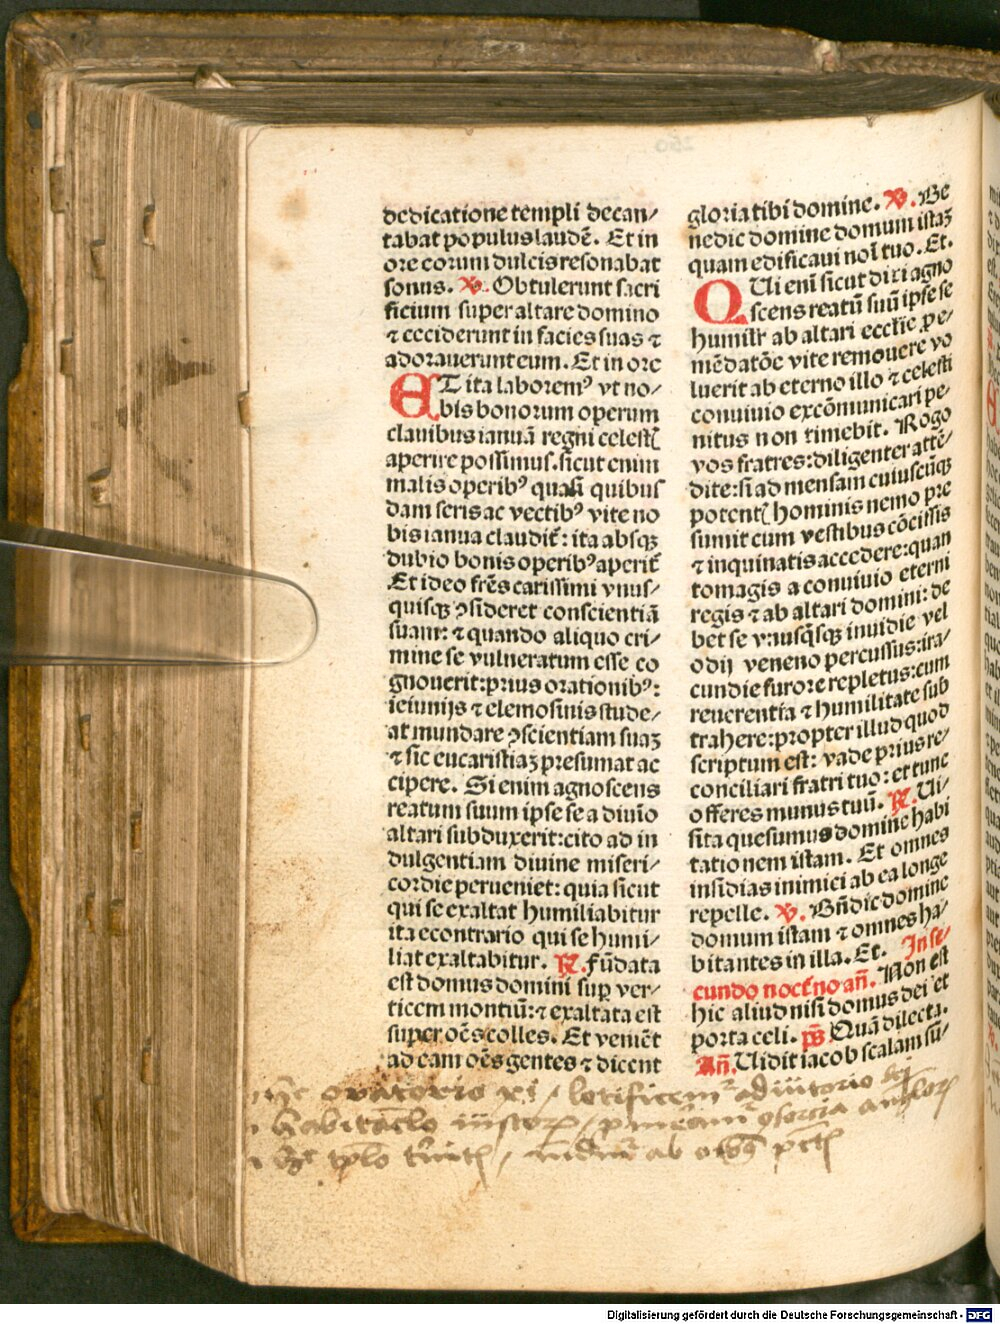 dedicatione templi decan/
tabat populus laudē. Et in
ore eorum dulcis resonabat
sonus. ℣. Obtulerunt sacri
ficium super altare domino
⁊ ceciderunt in facies suas ⁊
adorauerunt eum. Et in ore
ET ita laboremꝰ vt no/
bis bonorum operum
clauibus ianuā regni celestꝭ
aperire possimus. sicut enim
malis operibꝰ quasi quibus
dam seris ac vectibꝰ vite no
bis ianua claudit᷑: ita absqꝫ
dubio bonis operibꝰ aperit᷑
Et ideo fr̄es carissimi vnus/
quisqꝫ ꝯsideret conscientiā
suam: ⁊ quando aliquo cri/
mine se vulneratum esse co
gnouerit: prius orationibꝰ:
ieiunijs ⁊ elemosinis stude/
at mundare ꝯscientiam suaꝫ
⁊ sic eucaristiaꝫ presumat ac
cipere. Si enim agnoscens
reatum suum ipse se a diuīo
altari subduxerit: cito ad in
dulgentiam diuine miseri/
cordie perueniet: quia sicut
qui se exaltat humiliabitur
ita econtrario qui se humi/
liat exaltabitur. ℟. Fūdata
est domus domini sup̄ ver/
ticem montiū: ⁊ exaltata est
super oēs colles. Et veniēt
ad eam oēs gentes ⁊ dicent
gloria tibi domine. ℣. Be
nedic domine domum istaꝫ
quam edificaui noī tuo. Et.
QUi enī sicut dixi agno
scens reatū suū ipse se
humilr̄ ab altari ecclīe ꝑ e/
mēdatōe vite remouere vo
luerit ab eterno illo ⁊ celesti
conuiuio excōmunicari pe/
nitus non timebit. Rogo
vos fratres: diligenter attē/
dite: si ad mensam cuiuscūqꝫ
potentꝭ hominis nemo pre
sumit cum vestibus cōcissis
⁊ inquinatis accedere: quan
tomagis a conuiuio eterni
regis ⁊ ab altari domini: de
bet se vnusq̄sqꝫ inuidie vel
odij veneno percussus: ira/
cundie furore repletus: cum
reuerentia ⁊ humilitate sub
trahere: propter illud quod
scriptum est: vade prius re/
conciliari fratri tuo: et tunc
offeres munus tuū. ℟. Ui/
sita quesumus domine habi
tationem istam. Et omnes
insidias inimici ab ea longe
repelle. ℣. Bn̄dic domine
domum istam ⁊ omnes ha/
bitantes in illa. Et. In se/
cundo noct᷑no an̄. Non est
hic aliud nisi domus dei et
porta celi. ps̄ Quā dilecta.
An̄. Uidit iacob scalam sū/
oratorio xi / letificem᷑ adiutorio dei
habitac̄lo iustoꝝ / ꝯsorcia angloꝝ
ab oībꝫ pctꝭ
Digitalisierung gefördert durch die Deutsche Forschungsgemeinschaft - DFG